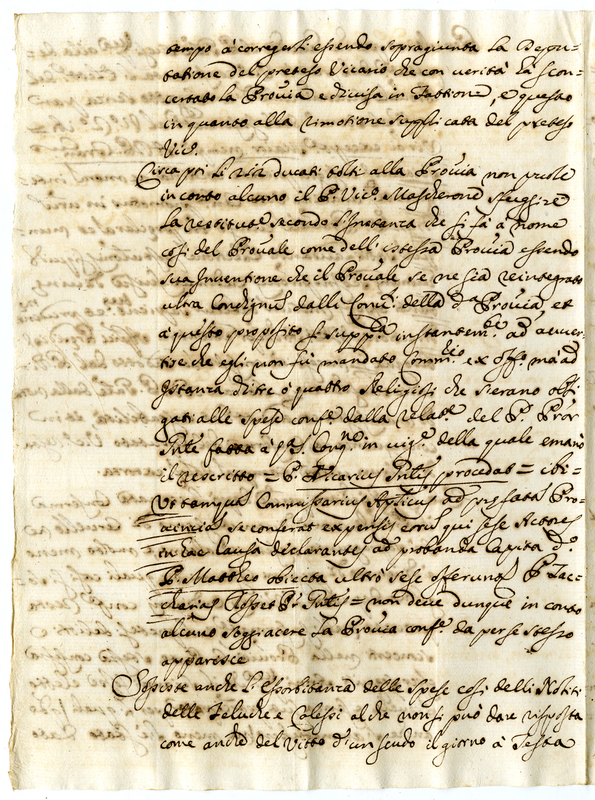 tempo à corregerli essendo sopragiunta la Depu-
tatione del preteso Vicario che con verità hà scon-
certato la Prouia e diuisa in fattione, e questo
in quanto alla rimotione supplicata del preteso
Vic.o
Circa poi li ducati tolti alla Prouia non puole
in conto alcuno il P. Vic.o Mascheroni sfuggire
la restitut.e secondo l'Instanza che si fà à nome
così del Prouale come dell'istessa Prouia essendo
sua Inuentione che il Prouale se ne sia reintegrato
ultra Condignũ dalli Conu.ti della d.a Prouia, et
à questo proposito si supp.ca instantem.te ad auuer-
tire che egli non fù mandato Comm.rio ex off.o mà ad
Istanza di tre ò quattro Religiosi che s'erano obli-
gati alle spese conf.e dalla relat.e del P. Prõr
Pntẽ fatta à q.a S. Cong.ne in uig.e della quale emanò
il rescritto = P. Vicarius Pntis procedat = ibi =
Vt tamquã Commissarius Aplicus ad prefatã Pro-
uinciã se conferat expensis eorũ qui sese Actores
in hac Causa declarantes ad probanda Capita d.o
P. Mattheo obiecta ultrò sese offerunt P. Zac-
charias P.r Pntis = non deue dunque in conto
alcuno soggiacere la Prouia conf.e da per se stesso
apparisce
anche l'essorbitanza delle spese così delli Noliti
delle Feluche e Calessi al che non si può dare risposta
come anche del Vitto d'un scudo il giorno à Testa